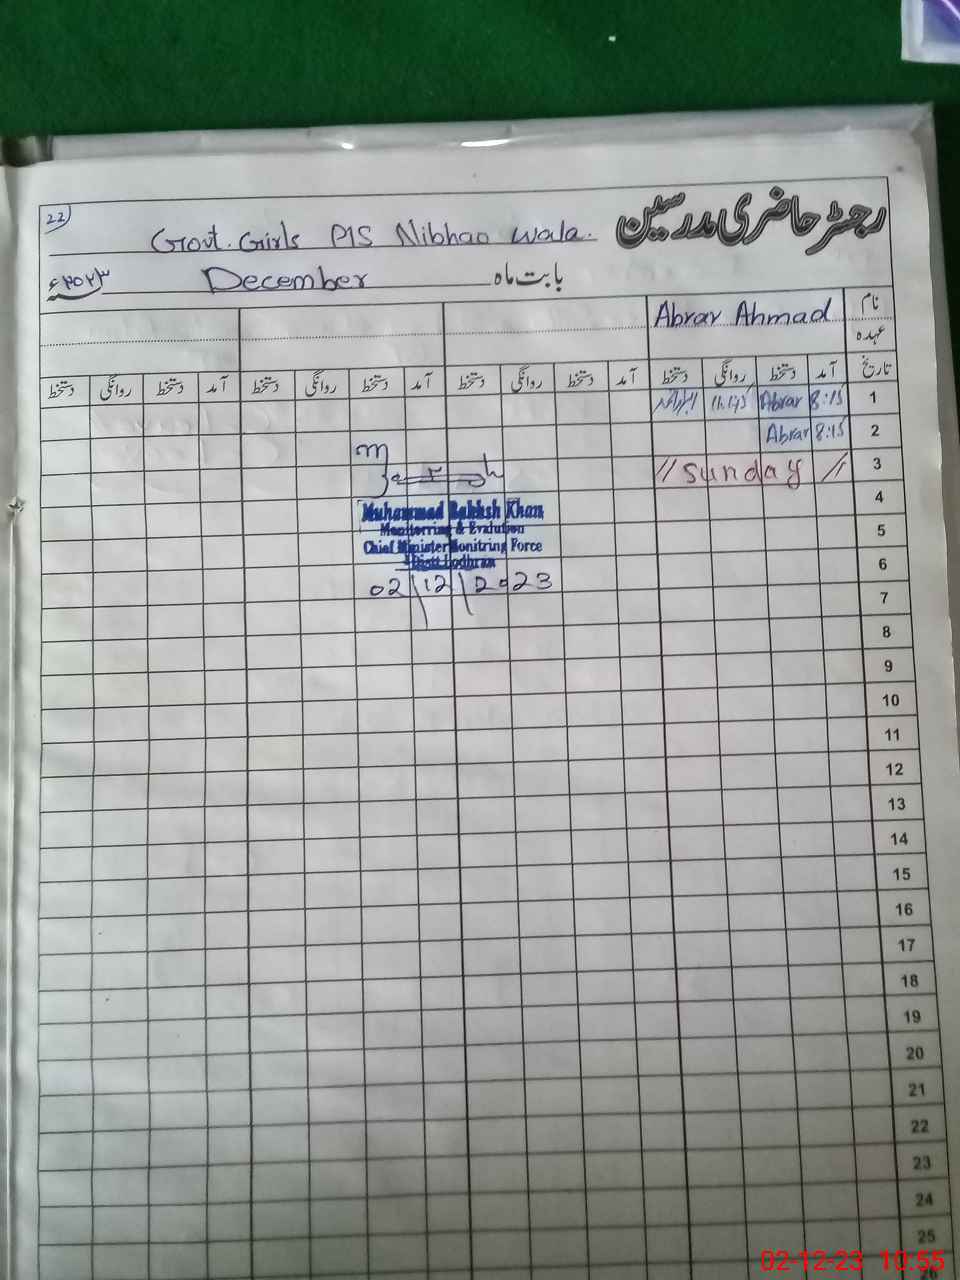 22
رجسٹر حاضری مدرسین
Govt. Girls P/S Nibhao Wala.
بابت ماہ December ۲۰۲۳ء
نام Abrar Ahmad
عہدہ
تاریخ آمد دستخط روانگی دستخط آمد دستخط روانگی دستخط آمد دستخط روانگی دستخط آمد دستخط روانگی دستخط
1 8:15 Abrar 11:45
2 8:15 Abrar
3 // Sunday //
4
Muhammad Bakhsh Khan
5
Monitorring & Evalution
Chief Minister Monitring Force
6
Distt Lodhran
02/12/2023
7
8
9
10
11
12
13
14
15
16
17
18
19
20
21
22
23
24
25
02-12-23 10:55